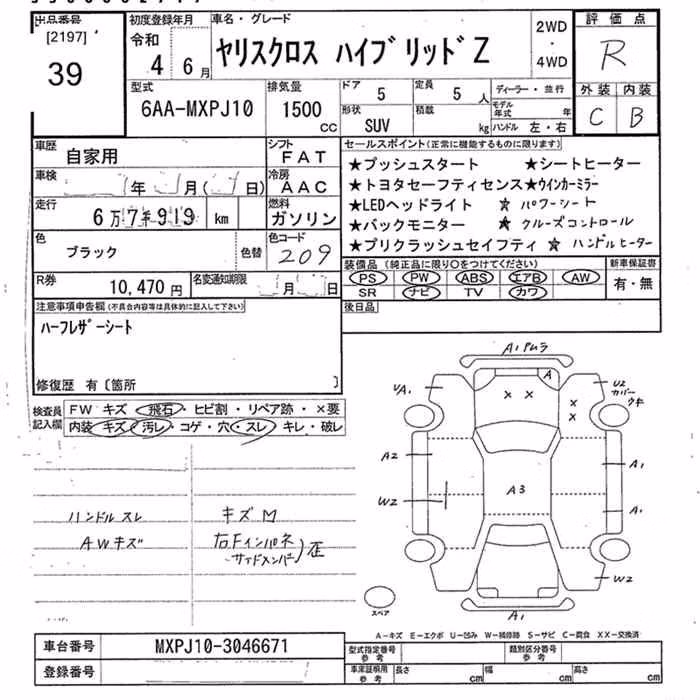 出品番号 初度登録年月 車名・グレード 評価点
[2197] 令和 ヤリスクロス ハイブリッドZ 2WD
39 4 6月 ・ 4WD R
型式 排気量 ドア 5 定員 5人 ディーラー・並行 外装 内装
6AA-MXPJ10 1500 cc 形状 SUV 積載 kg モデル年式 年 C B
ハンドル 左・右
車歴 自家用 シフト FAT セールスポイント(正常に機能するものに限ります)
車検 年 月( 日) 冷房 AAC ★プッシュスタート ★シートヒーター
走行 6万7千919 km 燃料 ガソリン ★トヨタセーフティセンス★ウインカーミラー
★LEDヘッドライト ☆ パワーシート
★バックモニター ☆ クルーズコントロール
色 ブラック 色替 色コード 209 ★プリクラッシュセイフティ ☆ ハンドルヒーター
装備品(純正品に限り○をつけてください) 新車保証書
R券 10,470円 名変通知期限 月 日 PS PW ABS エアB AW 有・無
SR ナビ TV カワ
注意事項申告欄(不具合内容等は具体的に記入して下さい) 後日品
ハーフレザーシート
修復歴 有〔箇所 〕
検査員記入欄 FW キズ・飛石・ヒビ割・リペア跡・×要
内装 キズ・汚レ・コゲ・穴・スレ・キレ・破レ
A1 アムラ
A
UA1 × × U2 カバーウキ
×
×
A2 A1
A3
W2 A1
W2
A1
スペア
ハンドルスレ キズM
AWキズ 右Fインパネ
・サイドメンバー)歪
A-キズ E-エクボ U-凹み W-補修跡 S-サビ C-腐食 XX-交換済
車台番号 MXPJ10-3046671 型式指定番号 参考 類別区分番号 参考
登録番号 車庫証明用 参考 長さ cm 幅 cm 高さ cm